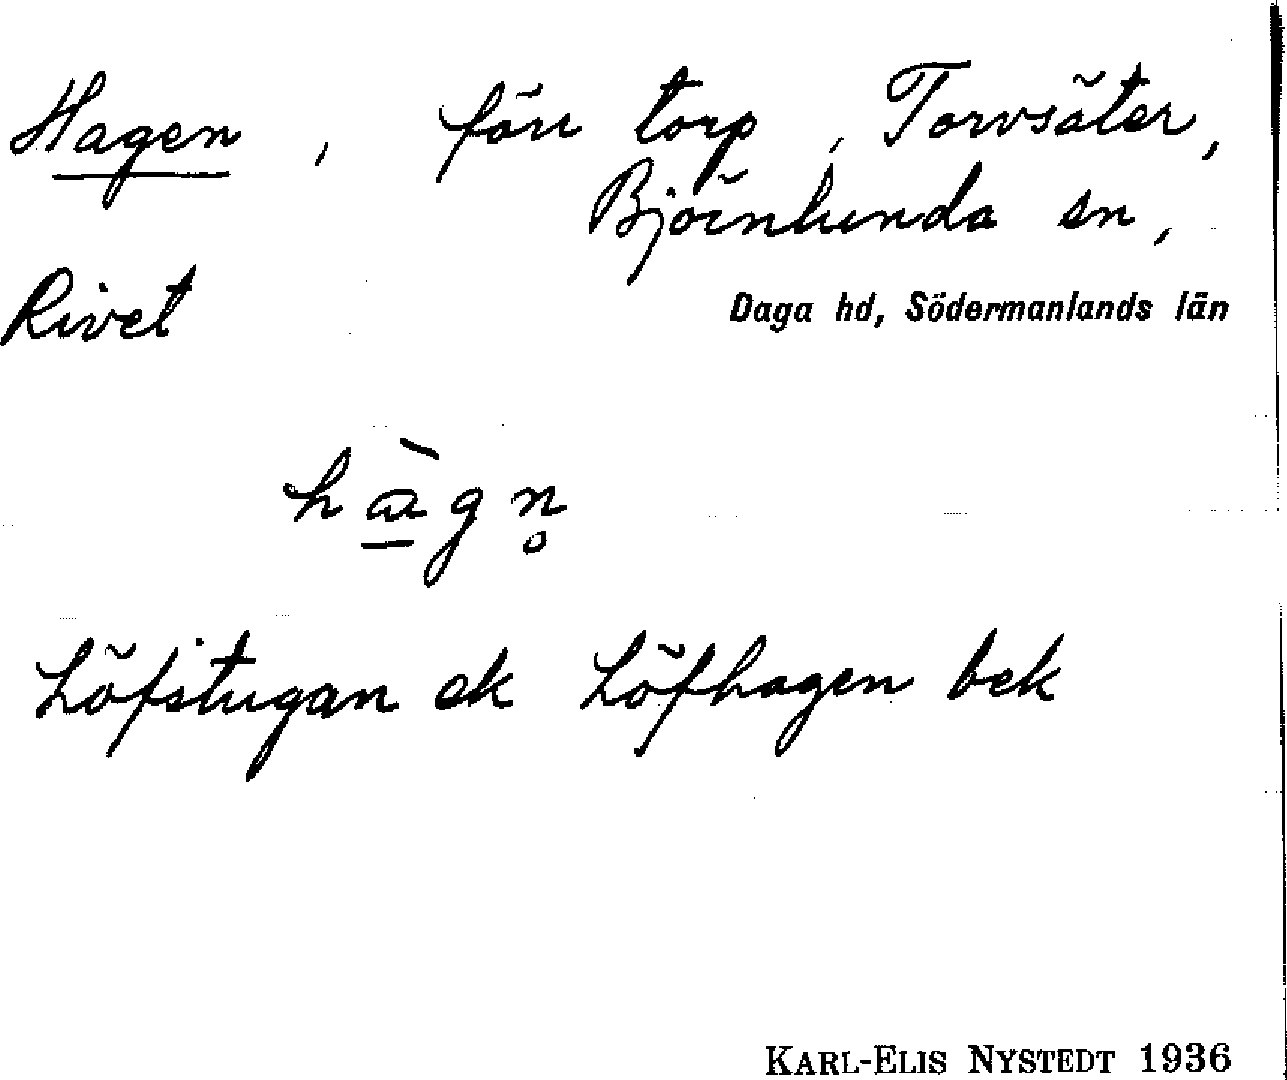 Hagen, förr torp, Torvsäter,
Björnlunda sn,
Rivet
Daga hd, Södermanlands län
hàgn̥
Löfstugan ek Löfhagen bek
KARL-ELIS NYSTEDT 1936